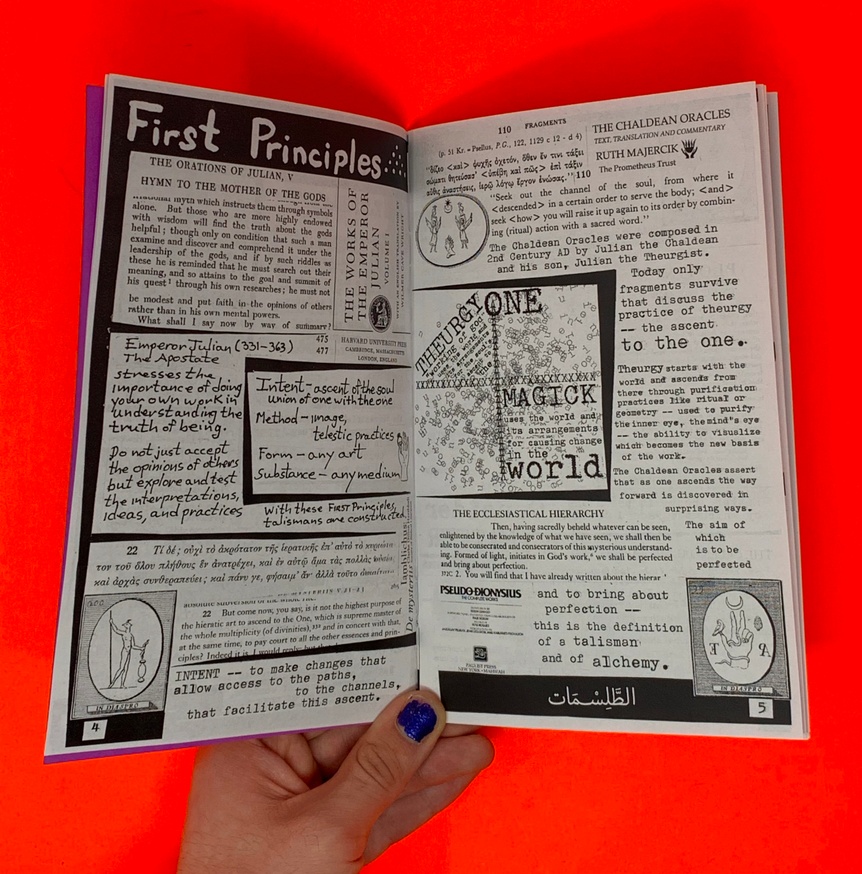 First Principles
THE ORATIONS OF JULIAN, V
HYMN TO THE MOTHER OF THE GODS
myth which instructs them through symbols
alone. But those who are more highly endowed
with wisdom will find the truth about the gods
helpful; though only on condition that such a man
examine and discover and comprehend it under the
leadership of the gods, and if by such riddles as
these he is reminded that he must search out their
meaning, and so attains to the goal and summit of
his quest through his own researches; he must not
be modest and put faith in the opinions of others
rather than in his own mental powers.
What shall I say now by way of summary?
475
477
THE WORKS OF
THE EMPEROR
JULIAN
VOLUME I
HARVARD UNIVERSITY PRESS
CAMBRIDGE, MASSACHUSETTS
LONDON, ENGLAND
Emperor Julian (331-363)
The Apostate
stresses the
importance of doing
your own work in
understanding the
truth of being.
Do not just accept
the opinions of others
but explore and test
the interpretations,
ideas, and practices
Intent - ascent of the soul
union of one with the one
Method - image,
telestic practices
Form - any art
Substance - any medium
With these First Principles,
talismans are constructed.
22 Τί δέ; οὐχὶ τὸ ἀκρότατον τῆς ἱερατικῆς ἐπ' αὐτὸ τὸ
τοῦ ὅλου πλήθους ἓν ἀνατρέχει, καὶ ἐν αὐτῷ ἅμα τὰς πολλὰς
καὶ ἀρχὰς συνθεραπεύει; καὶ πάνυ γε, φήσαιμ' ἄν' ἀλλὰ τοῦτο
22 But come now, you say, is it not the highest purpose of
the hieratic art to ascend to the One, which is supreme master of
the whole multiplicity (of divinities), and in concert with that,
at the same time, to pay court to all the other essences and prin-
ciples? Indeed it is, I would reply;
Iamblichus
De mysteriis
IN DIASPRO
INTENT -- to make changes that
allow access to the paths,
to the channels,
that facilitate this ascent.
4
110 FRAGMENTS
(p. 51 Kr. = Psellus, P.G., 122, 1129 c 12 - d 4)
"δίζεο <καὶ> ψυχῆς ὀχετόν, ὅθεν ἔν τινι τάξει
σώματι θητεύσασ' <ὑπέβη καὶ πῶς> ἐπὶ τάξιν
αὖθις ἀναστήσεις, ἱερῷ λόγῳ ἔργον ἑνώσας." 110
THE CHALDEAN ORACLES
TEXT, TRANSLATION AND COMMENTARY
RUTH MAJERCIK
The Prometheus Trust
"Seek out the channel of the soul, from where it
<descended> in a certain order to serve the body; <and>
seek <how> you will raise it up again to its order by combin-
ing (ritual) action with a sacred word."
The Chaldean Oracles were composed in
2nd Century AD by Julian the Chaldean
and his son, Julian the Theurgist.
Today only
fragments survive
that discuss the
practice of theurgy
-- the ascent
to the one.
THEURGY
working of god
ONE
MAGICK
uses the world and
its arrangements
for causing change
in the
world
Theurgy starts with the
world and ascends from
there through purification
practices like ritual or
geometry -- used to purify
the inner eye, the mind's eye
-- the ability to visualize
which becomes the new basis
of the work.
The Chaldean Oracles assert
that as one ascends the way
forward is discovered in
surprising ways.
THE ECCLESIASTICAL HIERARCHY
Then, having sacredly beheld whatever can be seen,
enlightened by the knowledge of what we have seen, we shall then be
able to be consecrated and consecrators of this mysterious understand-
ing. Formed of light, initiates in God's work, we shall be perfected
and bring about perfection.
2. You will find that I have already written about the hierar
The aim of
which
is to be
perfected
PSEUDO-DIONYSIUS
THE COMPLETE WORKS
PAULIST PRESS
NEW YORK • MAHWAH
and to bring about
perfection --
this is the definition
of a talisman
and of alchemy.
IN DIASPRO
الطَّلِسْمَات
5